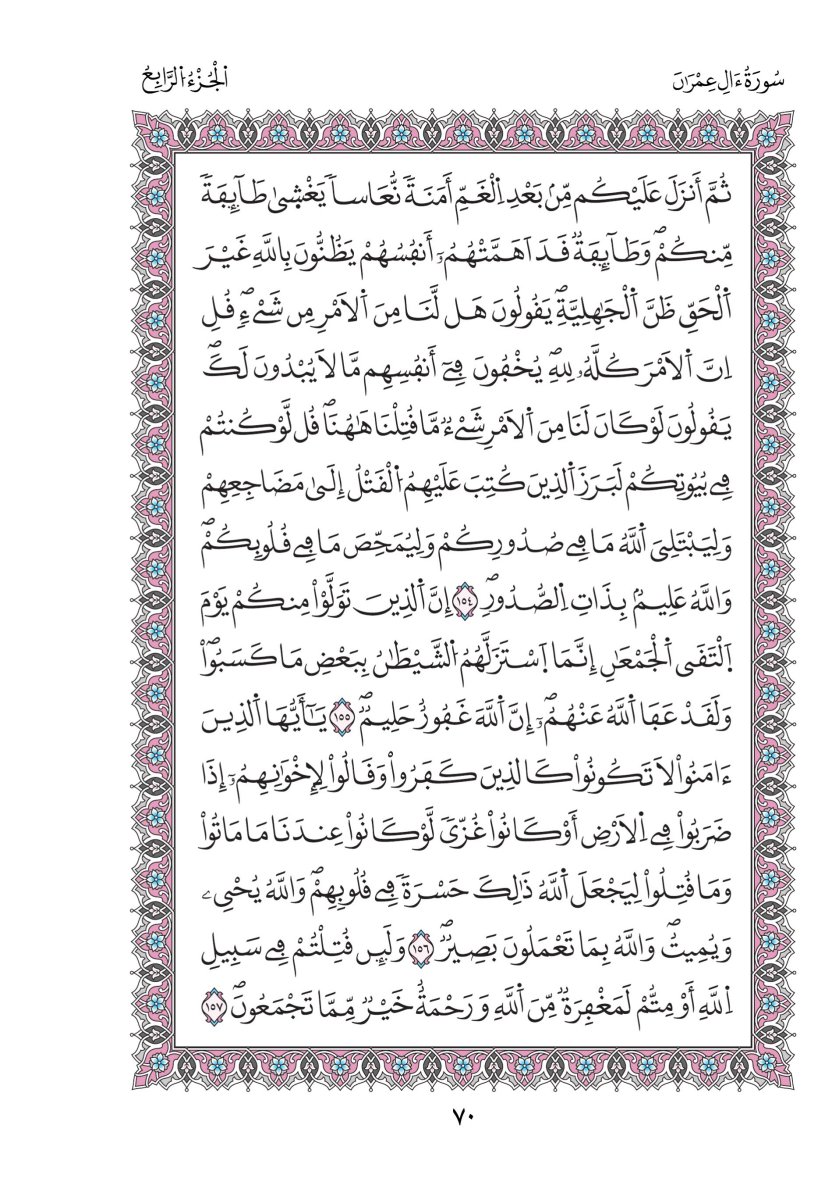 سُورَةُ ءَالِ عِمْرَٰنَ
اَ۬لْجُزْءُ اُ۬لرَّابِعُ
ثُمَّ أَنزَلَ عَلَيْكُم مِّنۢ بَعْدِ اِ۬لْغَمِّ أَمَنَةٗ نُّعَاساٗ يَغْش۪يٰ طَآئِفَةٗ
مِّنكُمْۖ وَطَآئِفَةٞ قَدَ اَهَمَّتْهُمُۥٓ أَنفُسُهُمْ يَظُنُّونَ بِاللَّهِ غَيْرَ
اَ۬لْحَقِّ ظَنَّ اَ۬لْجَٰهِلِيَّةِۖ يَقُولُونَ هَل لَّنَا مِنَ اَ۬لَامْرِ مِن شَےْءٖۖ قُلِ
اِنَّ اَ۬لَامْرَ كُلَّهُۥ لِلهِۖ يُخْفُونَ فِےٓ أَنفُسِهِم مَّا لَا يُبْدُونَ لَكَۖ
يَقُولُونَ لَوْ كَانَ لَنَا مِنَ اَ۬لَامْرِ شَےْءٞ مَّا قُتِلْنَا هَٰهُنَاۖ قُل لَّوْ كُنتُمْ
فِے بُيُوتِكُمْ لَبَرَزَ اَ۬لذِينَ كُتِبَ عَلَيْهِمُ اُ۬لْقَتْلُ إِلَيٰ مَضَاجِعِهِمْ
وَلِيَبْتَلِيَ اَ۬للَّهُ مَا فِے صُدُورِكُمْ وَلِيُمَحِّصَ مَا فِے قُلُوبِكُمْۖ
وَاللَّهُ عَلِيمُۢ بِذَاتِ اِ۬لصُّدُورِۖ ١٥٤ إِنَّ اَ۬لذِينَ تَوَلَّوْاْ مِنكُمْ يَوْمَ
اَ۪لْتَقَي اَ۬لْجَمْعَٰنِ إِنَّمَا اَ۪سْتَزَلَّهُمُ اُ۬لشَّيْطَٰنُ بِبَعْضِ مَا كَسَبُواْۖ
وَلَقَدْ عَفَا اَ۬للَّهُ عَنْهُمُۥٓۖ إِنَّ اَ۬للَّهَ غَفُورٌ حَلِيمٞۖ ١٥٥ يَٰٓأَيُّهَا اَ۬لذِينَ
ءَامَنُواْ لَا تَكُونُواْ كَالذِينَ كَفَرُواْ وَقَالُواْ لِإِخْوَٰنِهِمُۥٓ إِذَا
ضَرَبُواْ فِے اِ۬لَارْضِ أَوْ كَانُواْ غُزّيٗ لَّوْ كَانُواْ عِندَنَا مَا مَاتُواْ
وَمَا قُتِلُواْ لِيَجْعَلَ اَ۬للَّهُ ذَٰلِكَ حَسْرَةٗ فِے قُلُوبِهِمْۖ وَاللَّهُ يُحْيِۦ
وَيُمِيتُۖ وَاللَّهُ بِمَا تَعْمَلُونَ بَصِيرٞۖ ١٥٦ وَلَئِن قُتِلْتُمْ فِے سَبِيلِ
اِ۬للَّهِ أَوْ مِتُّمْ لَمَغْفِرَةٞ مِّنَ اَ۬للَّهِ وَرَحْمَةٌ خَيْرٞ مِّمَّا تَجْمَعُونَۖ ١٥٧
٧٠